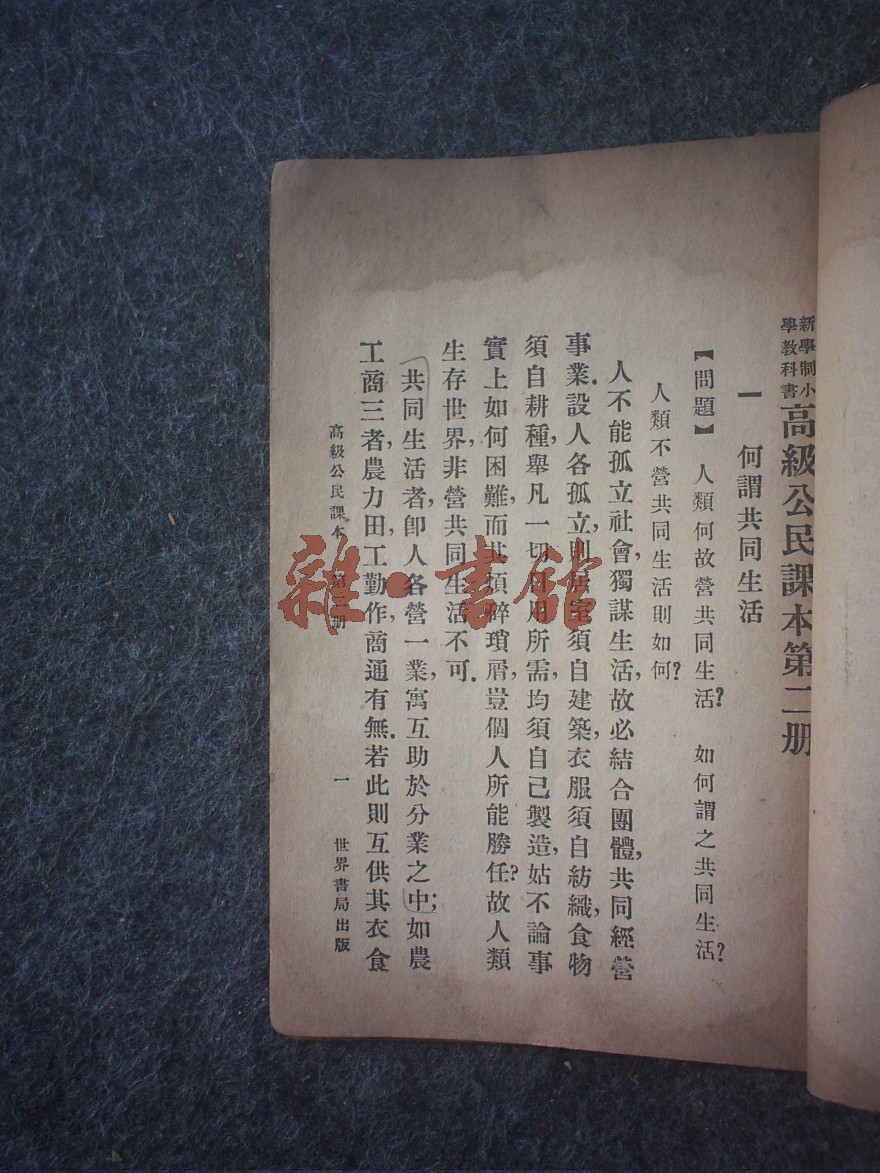 新學制小
學教科書
高級公民課本第二册
一 何謂共同生活
【問題】 人類何故營共同生活? 如何謂之共同生活?
人類不營共同生活則如何?
人不能孤立社會,獨謀生活,故必結合團體,共同經營
事業.設人各孤立,則居室須自建築,衣服須自紡織,食物
須自耕種,舉凡一切日用所需,均須自己製造,姑不論事
實上如何困難,而其煩碎瑣屑,豈個人所能勝任?故人類
生存世界,非營共同生活不可.
共同生活者,卽人各營一業,寓互助於分業之中;如農
工商三者,農力田,工勤作,商通有無.若此則互供其衣食
高級公民課本 第二册 一 世界書局出版
雜·書館